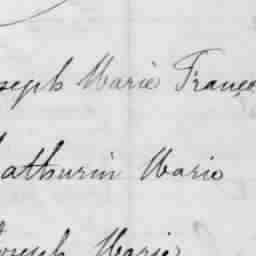 oseph Marie Franço
athurin Marie
Joseph Marie